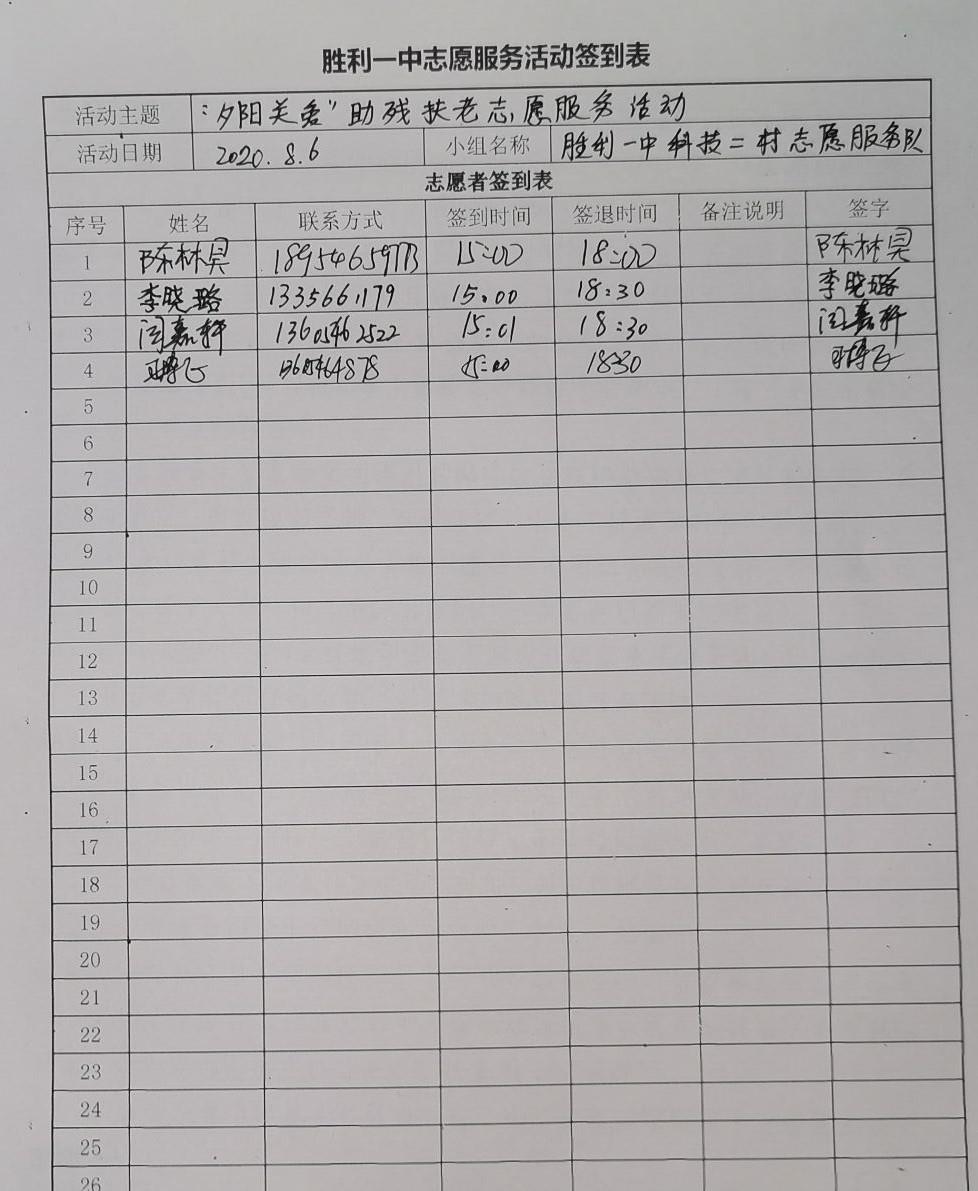 胜利一中志愿服务活动签到表
活动主题 "夕阳关爱"助残扶老志愿服务活动
活动日期 2020.8.6 小组名称 胜利一中科技二村志愿服务队
志愿者签到表
序号 姓名 联系方式 签到时间 签退时间 备注说明 签字
1 陈林昊 15:00 18:00 陈林昊
2 李晓璐 15:00 18:30 李晓璐
3 闫嘉轩 13605462522 15:01 18:30 闫嘉轩
4 15:00 1830
5
6
7
8
9
10
11
12
13
14
15
16
17
18
19
20
21
22
23
24
25
26